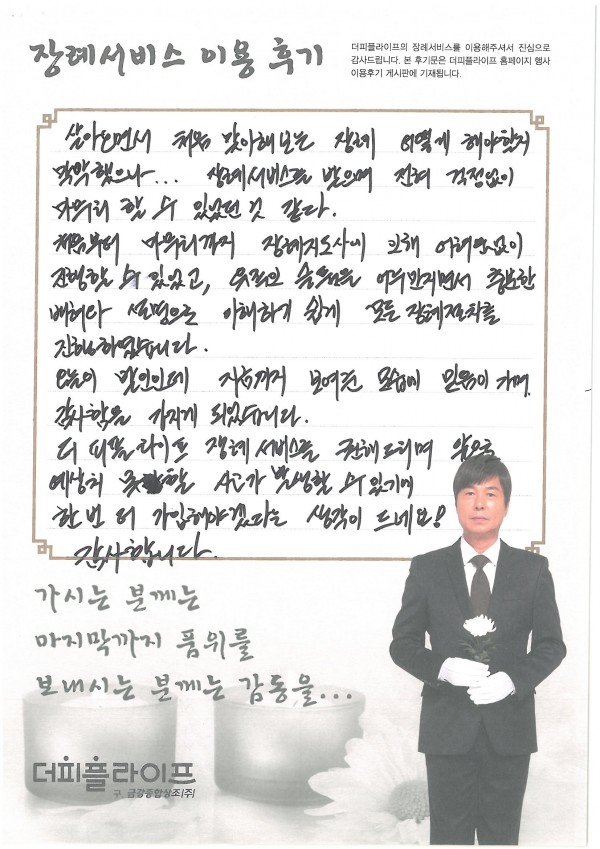 장례서비스 이용 후기
더피플라이프의 장례서비스를 이용해주셔서 진심으로
감사드립니다. 본 후기문은 더피플라이프 홈페이지 행사
이용후기 게시판에 기재됩니다.
살아오면서 처음 맞이해보는 장례 어떻게 해야할지
막막했으나... 장례서비스를 받으며 전혀 걱정없이
마무리 할 수 있었던 것 같다.
처음부터 마무리까지 장례지도사에 의해 어려움없이
진행할 수 있었고, 유족의 슬픔을 어루만지면서 충분한
배려와 설명으로 이해하기 쉽게 모든 장례절차를
진행하였습니다.
오늘이 발인인데 지금까지 보여준 모습에 믿음이 가며,
감사함을 가지게 되었습니다.
더 피플라이프 장례 서비스를 권해드리며 앞으로
예상치 못할 사고가 발생할 수 있기에
한번 더 가입해야겠다는 생각이 드네요!
감사합니다.
가시는 분께는
마지막까지 품위를
보내시는 분께는 감동을...
더피플라이프
구. 금강종합상조(주)